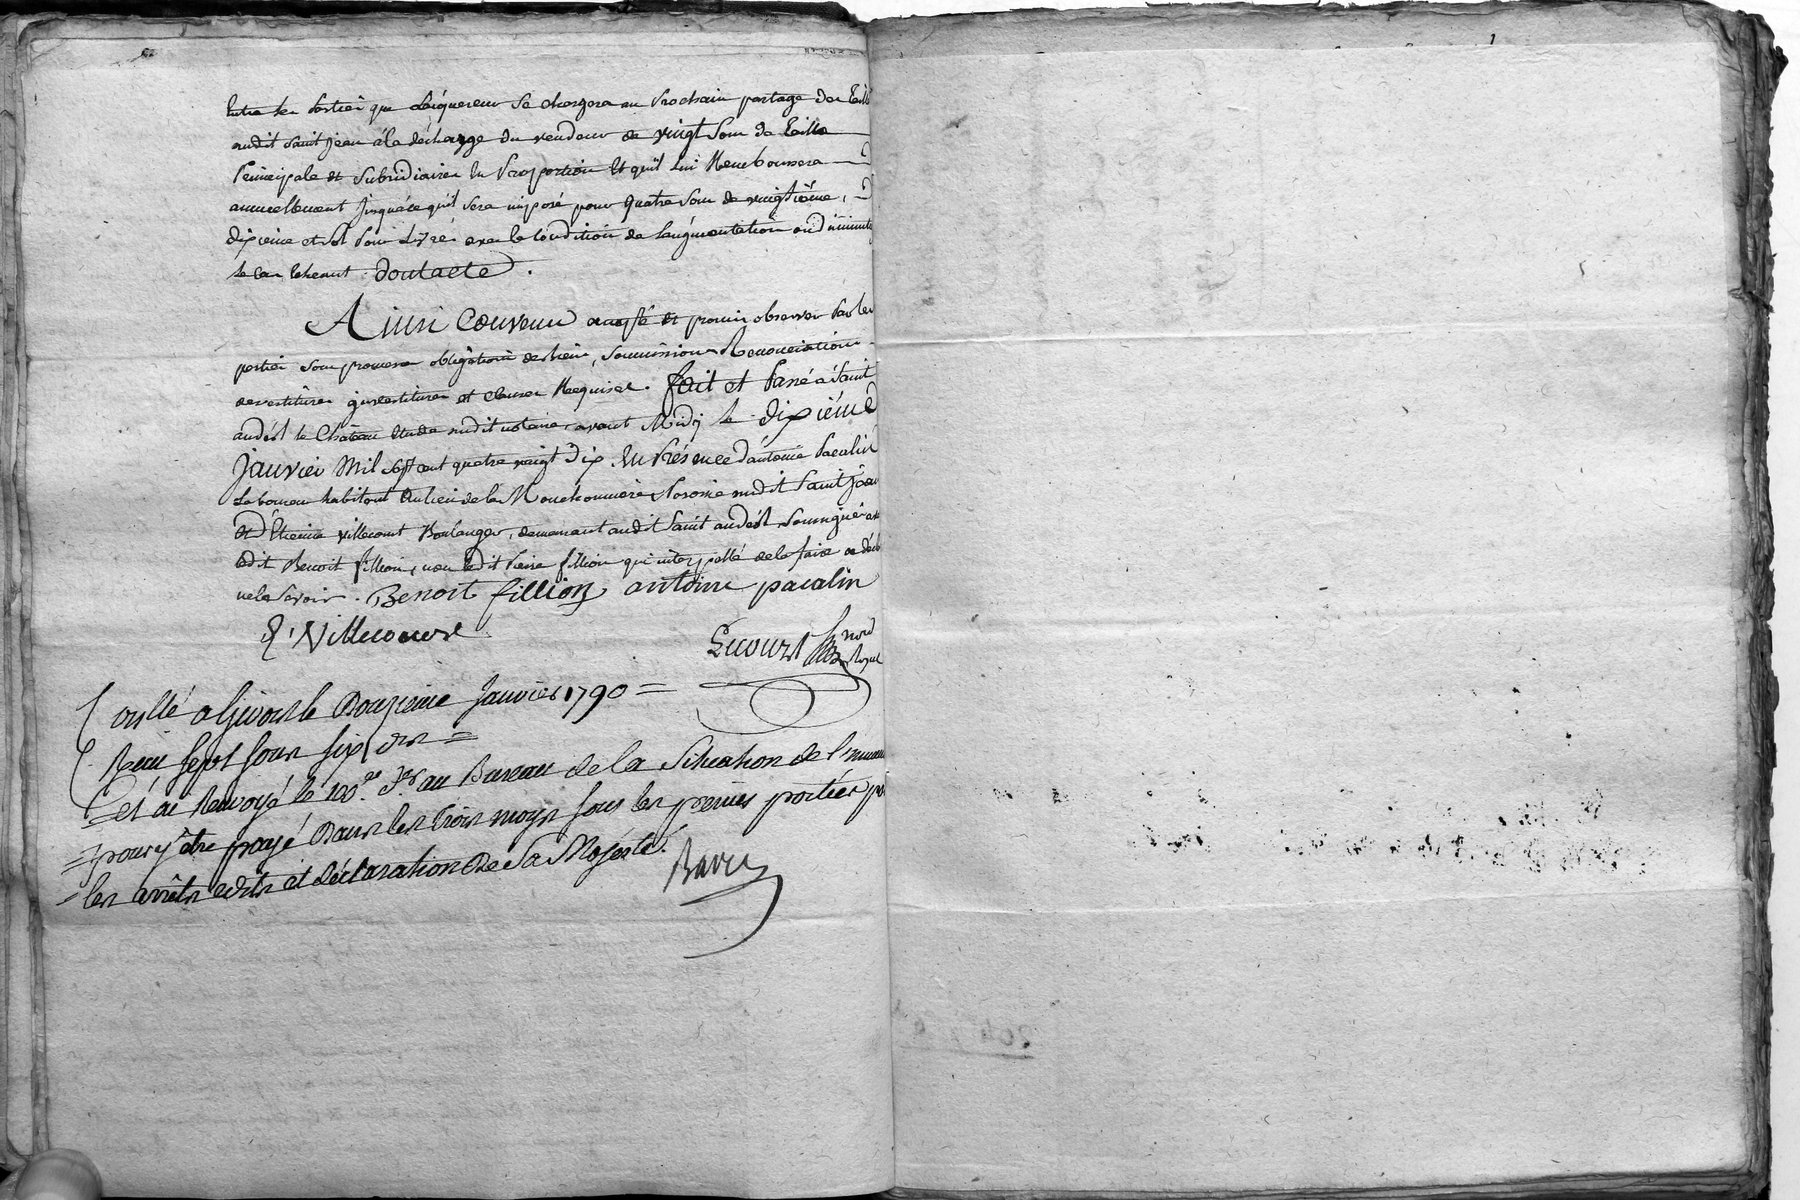 Entre les parties que l'acquereur se chargera au prochain partage des Taill
audit saint jean à la décharge du vendeur de vingt sous de taille
Principale et subsidiaires en Proportion et qu'il lui Remboursera
annuellement jusqu'à ce qu'il sera imposé pour quatre sous de vingtième,
dixième et sol pour Livre avec la condition de l'augmentation ou diminut
le cas echeant. dont acte.
Ainsi Convenu accepté et promis observer Par les
parties sous promesse obligation de biens, soumissions Renonciations
devestitures investitures et clauses Requises. fait et Passé à Saint
andéol le Château Etude dudit notaire, avant Midy le dixiéme
janvier Mil sept cent quatre vingt Dix En Présence d'antoine Pacalin
Laboureur habitant au lieu de la Mouchonniere Paroisse dudit Saint Jean
et d'Etienne villecourt Boulanger, demeurant audit Saint andéol Soussignés
ledit Benoit fillion, non ledit Pierre fillion qui interpellé de le faire a décl
ne le savoir. Benoit fillion antoine pacalin
E, Villecourt
Lecourt nore Royal
Collé a Givors le Douzieme Janvier 1790 =
Reçu sept sous six drs =
Et ai Renvoyé le 100.e dr au Bureau de la Situation de l'immeu
= pour y être payé Dans les trois moys sous les peines portées par
= les arrêts edits et déclaration De Sa Majesté.